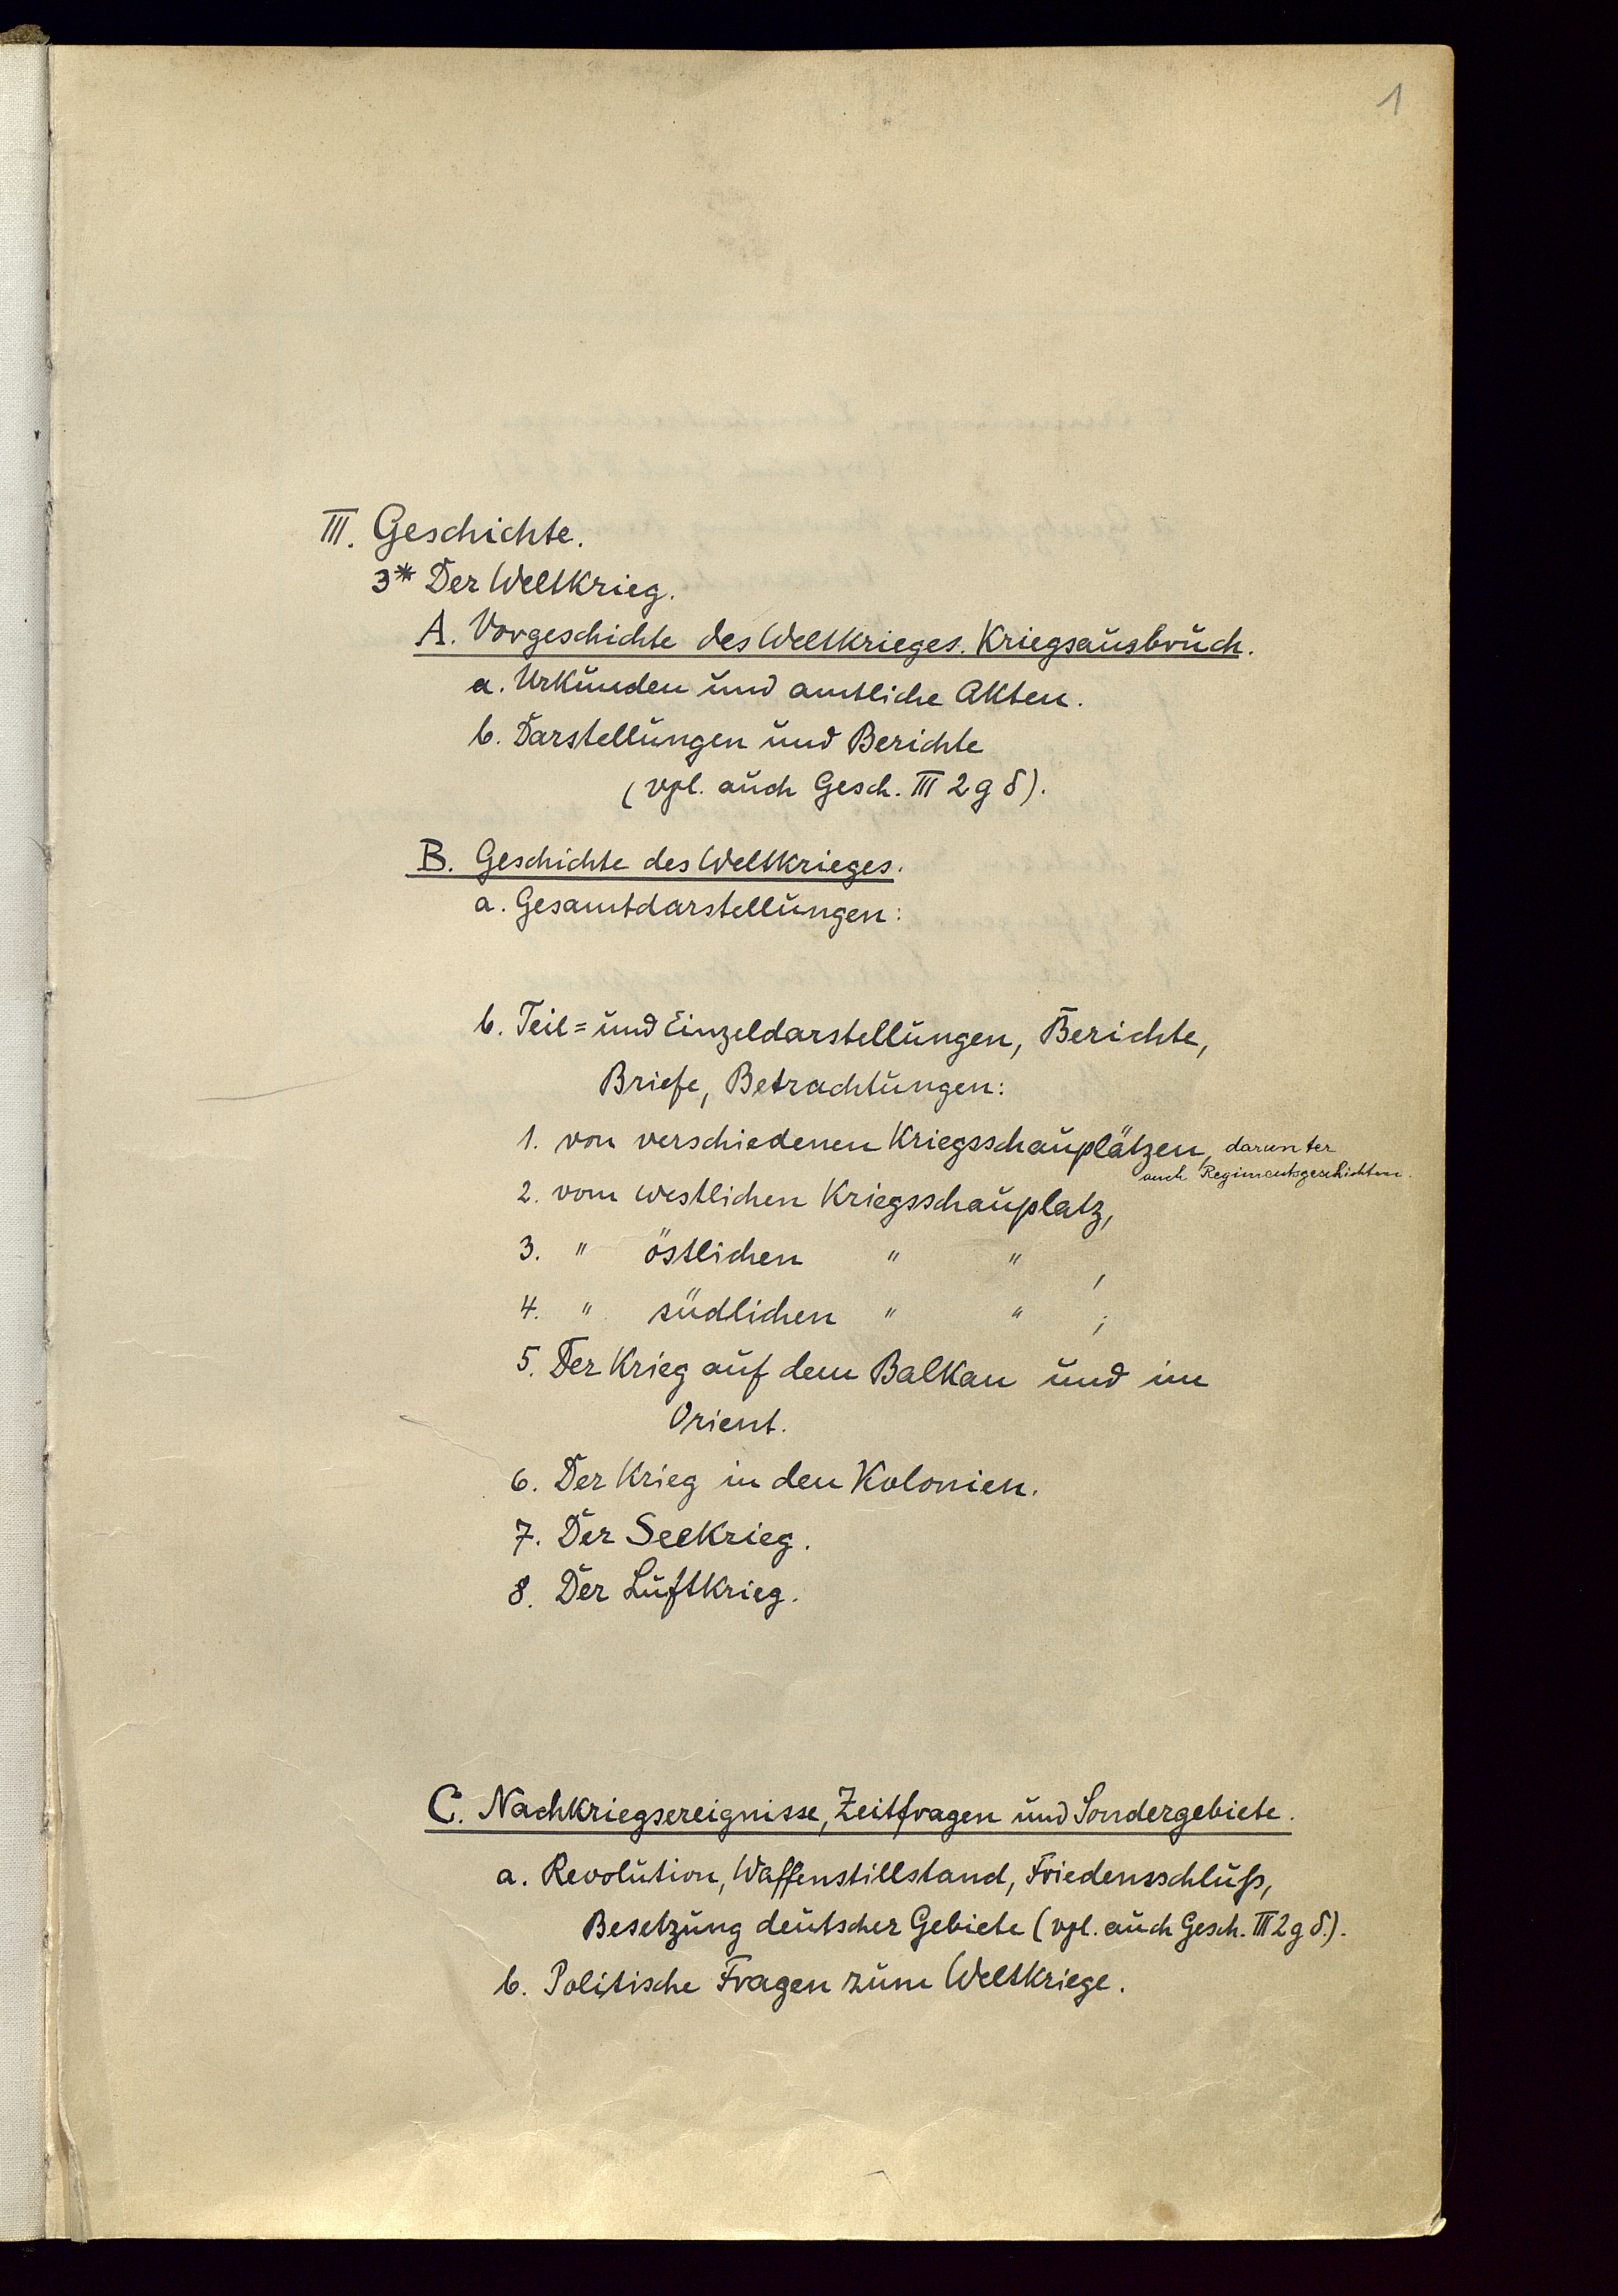 1
III. Geschichte.
3* Der Weltkrieg.
A. Vorgeschichte des Weltkrieges. Kriegsausbruch.
a. Urkunden und amtliche Akten.
b. Darstellungen und Berichte
(vgl. auch Gesch. III 2 g δ).
B. Geschichte des Weltkrieges.
a. Gesamtdarstellungen:
b. Teil= und Einzeldarstellungen, Berichte,
Briefe, Betrachtungen:
1. von verschiedenen Kriegsschauplätzen, darunter
auch Regimentsgeschichten.
2. vom westlichen Kriegsschauplatz,
3. " östlichen " " ,
4. " südlichen " " ;
5. Der Krieg auf dem Balkan und im
Orient.
6. Der Krieg in den Kolonien.
7. Der Seekrieg.
8. Der Luftkrieg.
C. Nachkriegsereignisse, Zeitfragen und Sondergebiete.
a. Revolution, Waffenstillstand, Friedensschluß,
Besetzung deutscher Gebiete (vgl. auch Gesch. III 2 g δ.).
b. Politische Fragen zum Weltkriege.